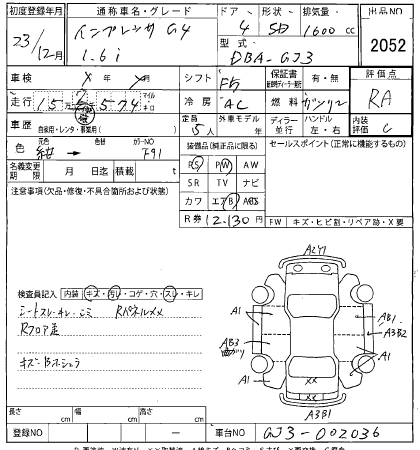 初度登録年月 通称車名・グレード ドア 形状 排気量 出品NO
23/12月 インプレッサG4 1.6i 4 SD 1600cc
型式 DBA-GJ3 2052
車検 × 年 × 月 シフト F5 保証書 有・無 評価点
走行 15万2574 マイル キロ 冷房 AC 燃料 ガソリン RA
車歴 自家用・レンタ・事業用( ) 定員 5人 外車モデル 年 ディーラー 並行 ハンドル 左・右 内装評価 C
色 元色 紺 → 色 カラーNO F91 装備品(純正品に限る) セールスポイント(正常に機能するもの)
名義変更期限 月 日迄 積載 t PS PW AW
注意事項(欠品・修復・不具合箇所および状態) SR TV ナビ
カワ エアB ABS
R券 12.130円 FW キズ・ヒビ割・リペア跡・X要
検査員記入 内装 キズ・汚レ・コゲ・穴・スレ・キレ
シートスレ・キレ・
Rフロア
キズ・
A2Y1
A1
AB1
A3B2
AB3
A1
A1
XX
XX
A3B1
長さ cm 幅 cm 高さ cm
登録NO ー 車台NO GJ3-002036